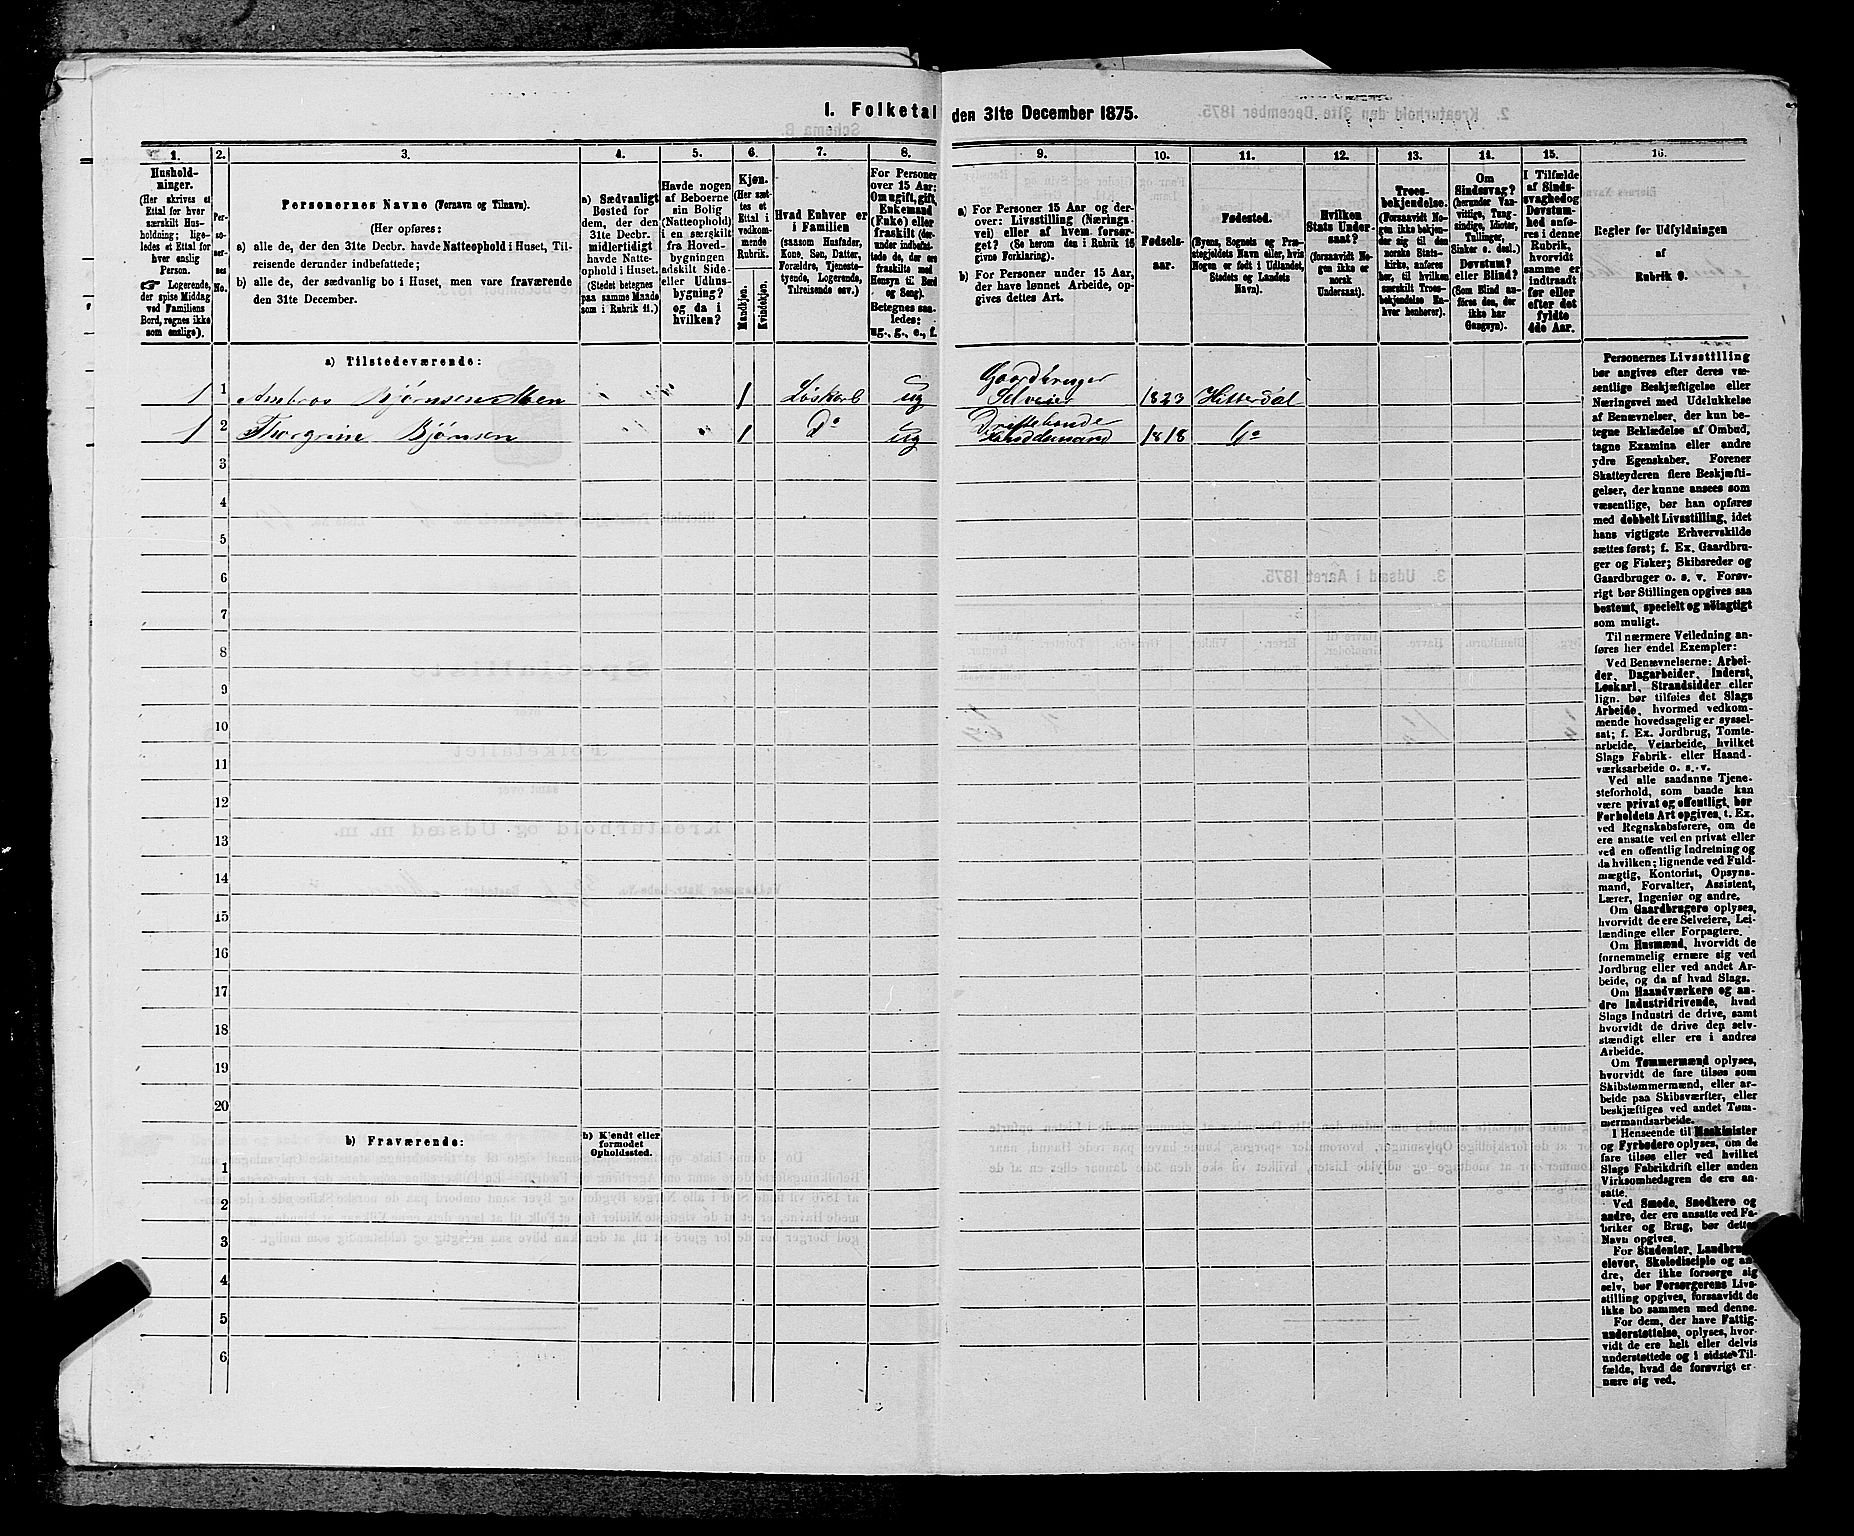 1. Folketal den 31te December 1875.
1. 2. 3. 4. 5. 6. 7. 8. 9. 10. 11. 12. 13. 14. 15. 16.
Hushold-
ninger.
(Her skrives et
Ettal for hver
særskilt Hus-
holdning; lige-
ledes et Ettal for
hver enslig
Person.
☞ Logerende,
der spise Middag
ved Familiens
Bord, regnes ikke
som enslige).
Per-
soner-
nes
No.
Personernes Navne (Fornavn og Tilnavn).
(Her opføres:
a) alle de, der den 31te Decbr. havde Natteophold i Huset, Til-
reisende derunder indbefattede;
b) alle de, der sædvanlig bo i Huset, men vare fraværende
den 31te December.
a) Sædvanligt
Bosted for
dem, der den
31te Decbr.
midlertidigt
havde Natte-
ophold i Huset.
(Stedet betegnes
paa samme Maade
som i Rubrik 11.)
Havde nogen
af Beboerne
sin Bolig
(Natteophold)
i en særskilt
fra Hoved-
bygningen
adskilt Side-
eller Udhus-
bygning?
og da i
hvilken?
Kjøn.
(Her sæt-
tes et
Ettal i
vedkom-
mende
Rubrik.
Mandkjøn.
Kvindekjøn.
Hvad Enhver er
i Familien
(saasom Husfader,
Kone, Søn, Datter,
Forældre, Tjeneste-
tyende, Logerende,
Tilreisende osv.)
For Personer
over 15 Aar:
Om ugift, gift,
Enkemand
(Enke) eller
fraskilt (der-
under indbefat-
tede de, der ere
fraskilte med
Hensyn til Bord
og Seng).
Betegnes saa-
ledes:
ug., g., e., f.
a) For Personer 15 Aar og der-
over: Livsstilling (Nærings-
vei) eller af hvem forsør-
get? (Se herom den i Rubrik 16
givne Forklaring).
b) For Personer under 15 Aar,
der have lønnet Arbeide, op-
gives dettes Art.
Fødsels-
aar.
Fødested.
(Byens, Sognets og Præ-
stegjeldets Navn eller, hvis
Nogen er født i Udlandet,
Stedets og Landets
Navn).
Hvilken
Stats Under-
saat?
(forsaavidt No-
gen ikke er
norsk
Undersaat).
Troes-
bekjendelse.
(Forsaavidt No-
gen ikke bekjen-
der sig til den
norske Stats-
kirke, anføres
her, til hvilken
særskilt Troes-
bekjendelse En-
hver henhører).
Om
Sindssvag?
(herunder Van-
vittige, Tung-
sindige, Idioter,
Tullinger,
Sinker o. desl.)
Døvstum?
eller Blind?
(Som Blind an-
føres den, der
ikke har
Gangsyn).
I Tilfælde
af Sinds-
svaghed og
Døvstum-
hed anfø-
res i denne
Rubrik,
hvorvidt
samme er
indtraadt
før eller
efter det
fyldte
4de Aar.
Regler for Udfyldningen
af
Rubrik 9.
a) Tilstedeværende:
1 1 Ambros Bjørnsen Moen 1 Løskarl ug Gaardbruger Selveier 1823 Hitterdal
1 2 Thorgrim Bjørnsen 1 Do ug 1818 Do
3
4
5
6
7
8
9
10
11
12
13
14
15
16
17
18
19
20
b) Fraværende:
b) Kjendt eller
formodet
Opholdssted.
1
2
3
4
5
6
Personernes Livsstilling
bør angives efter deres væ-
sentlige Beskjæftigelse eller
Næringsvei med Udelukkelse
af Benævnelser, der kun be-
tegne Beklædelse af Ombud,
tagne Examina eller andre
ydre Egenskaber. Forener
Skatteyderen flere Beskjæfti-
gelser, der kunne ansees som
væsentlige, bør han opføres
med dobbelt Livsstilling, idet
hans vigtigste Erhvervskilde
sættes først; f. Ex. Gaardbru-
ger og Fisker; Skibsreder og
Gaardbruger o. s. v. Forøv-
rigt bør Stillingen opgives saa
bestemt, specielt og nöiagtigt
som muligt.
Til nærmere Veiledning an-
føres her endel Exempler:
Ved Benævnelserne: Arbei-
der, Dagarbeider, Inderst,
Løskarl, Strandsidder eller
lign. bør tilføies det Slags
Arbeide, hvormed vedkom-
mende hovedsagelig er syssel-
sat; f. Ex. Jordbrug, Tomte-
arbeide, Veiarbeide, hvilket
Slags Fabrik- eller Haand-
værksarbeide o. s. v.
Ved alle saadanne Tjene-
steforhold, som baade kan
være privat og offentligt, bør
Forholdets Art opgives, t. Ex.
ved Regnskabsførere, om de
ere ansatte ved en privat eller
ved en offentlig Indretning og
da hvilken; lignende ved Fuld-
mægtig, Kontorist, Opsyns-
mand, Forvalter, Assistent,
Lærer, Ingeniør og andre.
Om Gaardbrugere oplyses,
hvorvidt de ere Selveiere, Lei-
lændinge eller Forpagtere.
Om Husmænd, hvorvidt de
fornemmelig ernære sig ved
Jordbrug eller ved andet Ar-
beide, og da af hvad Slags.
Om Haandværkere og an-
dre Industridrivende, hvad
Slags Industri de drive, samt
hvorvidt de drive den selv-
stændigt eller ere i andres
Arbeide.
Om Tømmermænd oplyses,
hvorvidt de fare tilsøs som
Skibstømmermænd, eller ar-
beide paa Skibsværfter, eller
beskjæftiges ved andet Tøm-
mermandsarbeide.
I Henseende til Maskinister
og Fyrbødere oplyses, om de
fare tilsøs eller ved hvilket
Slags Fabrikdrift eller anden
Virksomhedsgren de ere an-
satte.
Ved Smede, Snedkere og
andre, der ere ansatte ved Fa-
briker og Brug, bør dettes
Navn opgives.
For Studenter, Landbrugs-
elever, Skoledisciple og an-
dre, der ikke forsørge sig
selv, bør Forsørgerens Livs-
stilling opgives, forsaavidt de
ikke bo sammen med denne.
For dem, der have Fattig-
understøttelse, oplyses, hvor-
vidt de ere helt eller delvis
understøttede og i sidste Til-
fælde, hvad de forøvrigt er-
nære sig ved.